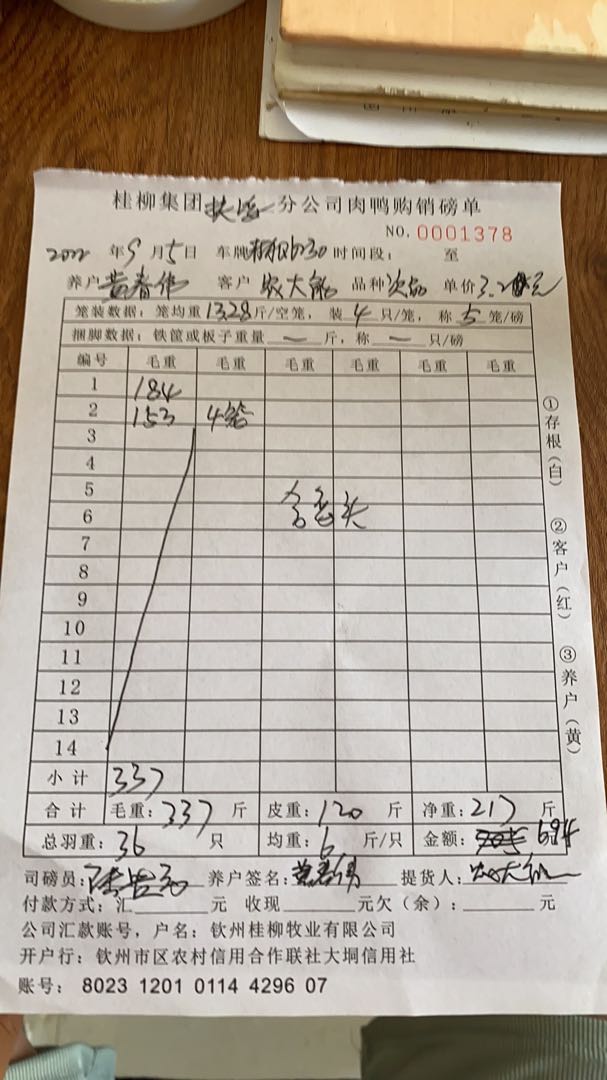 桂柳集团 分公司肉鸭购销磅单
NO. 0001378
2022 年 9 月 5 日 车牌 时间段: 至
养户 黄春伟 客户 农大 品种 次品 单价 3.2 元
笼装数据: 笼均重 13.28 斤/空笼, 装 4 只/笼, 称 5 笼/磅
捆脚数据: 铁筐或板子重量 — 斤, 称 — 只/磅
编号 毛重 毛重 毛重 毛重 毛重 毛重
1 184
2 153 4笼
3
4
5
6
7
8
9
10
11
12
13
14
小计 337
合计 毛重: 337 斤 皮重: 120 斤 净重: 217 斤
总羽重: 36 只 均重: 6 斤/只 金额: 694
司磅员: 养户签名: 黄春伟 提货人: 农大
付款方式: 汇 元 收现 元欠(余): 元
公司汇款账号, 户名: 钦州桂柳牧业有限公司
开户行: 钦州市区农村信用合作联社大垌信用社
账号: 8023 1201 0114 4296 07
①存根(白) ②客户(红) ③养户(黄)